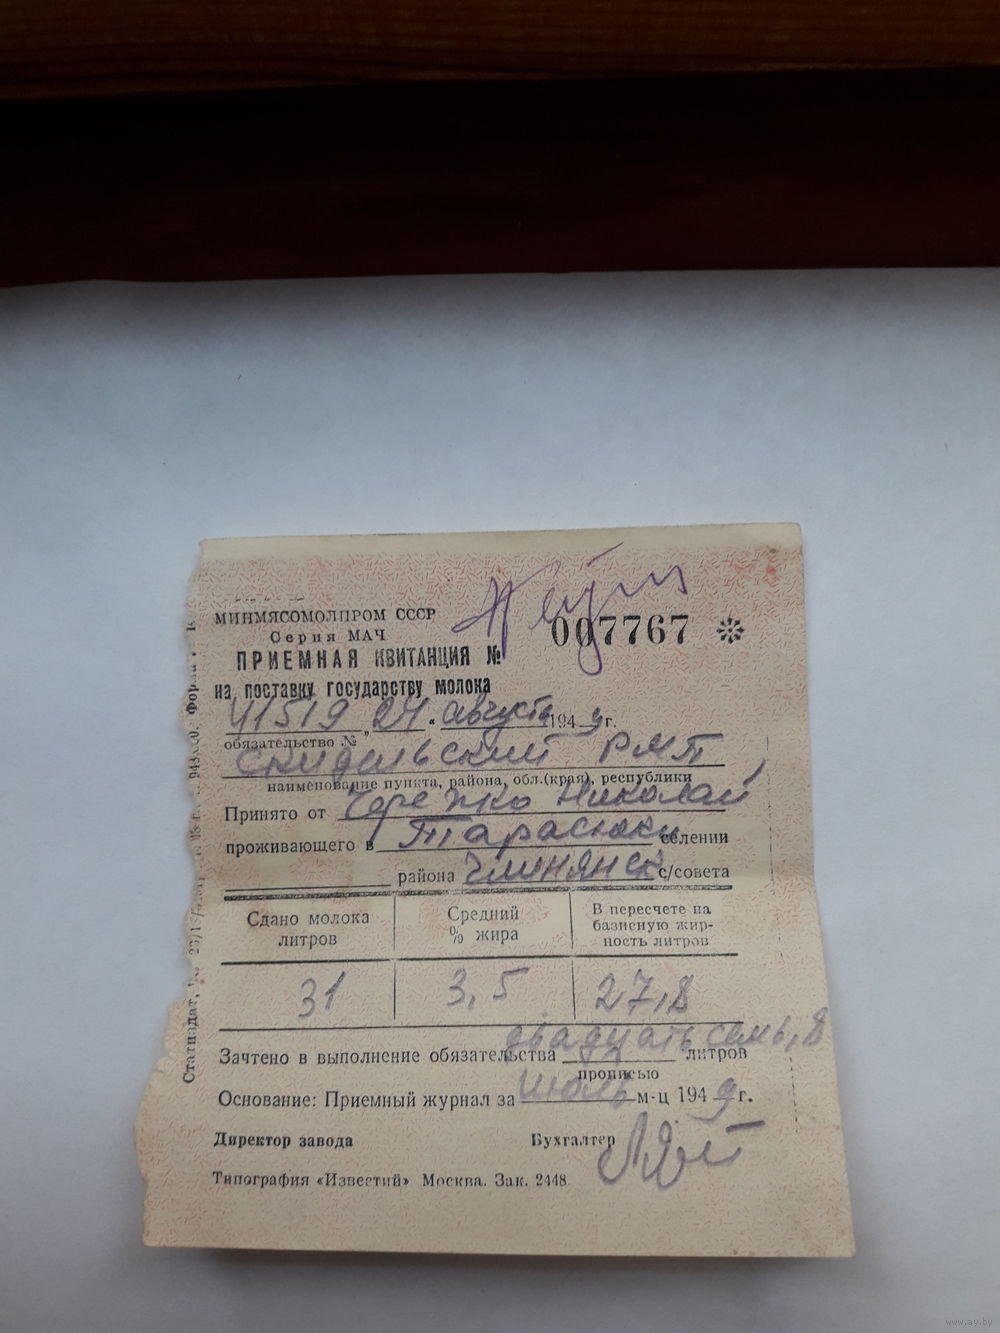 МИНМЯСОМОЛПРОМ СССР
Серия МАЧ
007767
ПРИЕМНАЯ КВИТАНЦИЯ №
на поставку государству молока
41519 „24“ августа 1949г.
обязательство №
Скидельский РМП
наименование пункта, района, обл.(края), республики
Принято от Чережко Николай
проживающего в Тарасюки селении
района с/совета
Сдано молока литров
Средний % жира
В пересчете на базисную жирность литров
31 3,5 27,8
двадцать семь,8
Зачтено в выполнение обязательства литров
прописью
Основание: Приемный журнал за июль м-ц 1949г.
Директор завода Бухгалтер
Типография «Известий» Москва. Зак. 2448.
www.ay.by